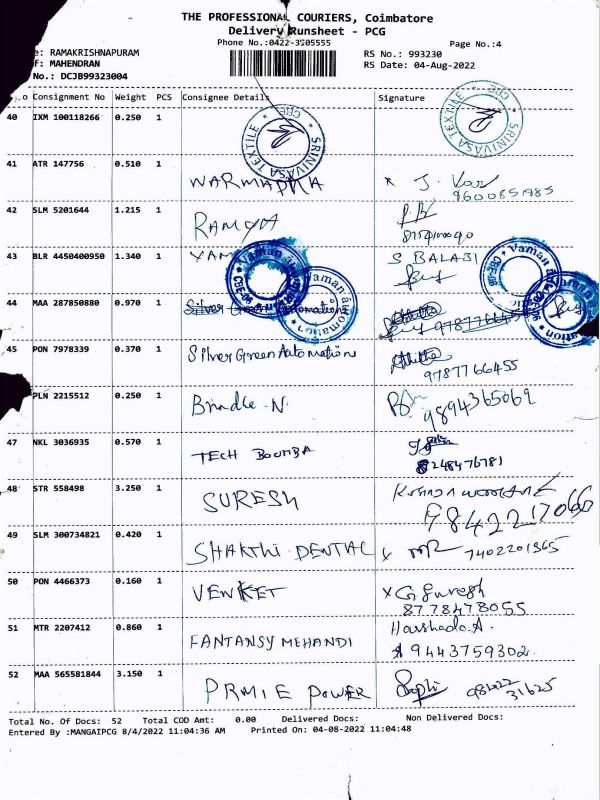 THE PROFESSIONAL COURIERS, Coimbatore
Delivery Runsheet - PCG
Phone No.:0422-3505555
Page No.:4
e: RAMAKRISHNAPURAM RS No.: 993230
f: MAHENDRAN RS Date: 04-Aug-2022
No.: DCJB99323004
o Consignment No Weight PCS Consignee Details Signature
40 IXM 100118266 0.250 1
SRINIVASA TEXTILE * CBE * SRINIVASA TEXTILE * CBE *
41 ATR 147756 0.510 1 WARMADHA J.
9600851985
42 SLM 5201644 1.215 1 RAMYA
43 BLR 4450400950 1.340 1 S BALAJI
Vaman automation CBE Vaman automation CBE
44 MAA 287850880 0.970 1 Silver Green Automation
45 PON 7978339 0.370 1 Silver Green Automation
9787766455
PLN 2215512 0.250 1 Brindle .N.
9894365069
47 NKL 3036935 0.570 1 TECH BOOMBA
8248476781
48 STR 558498 3.250 1 SURESH
9842217066
49 SLM 300734821 0.420 1 SHAKTHI DENTAL x
7402201565
50 PON 4466373 0.160 1 VENKET x G. Suresh
8778478055
51 MTR 2207412 0.860 1 FANTANSY MEHANDI Harshada.A.
9443759302
52 MAA 565581844 3.150 1 PRMIE POWER
98422
31625
Total No. Of Docs: 52 Total COD Amt: 0.00 Delivered Docs: Non Delivered Docs:
Entered By :MANGAIPCG 8/4/2022 11:04:36 AM Printed On: 04-08-2022 11:04:48